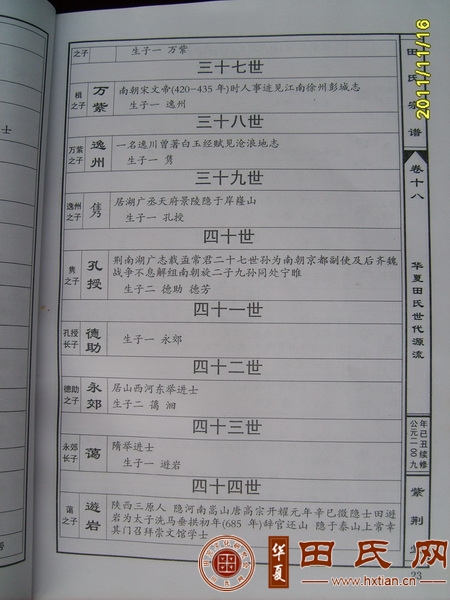 之子
生子一 万紫
三十七世
楫之子
万紫
南朝宋文帝(420-435年)时人事迹见江南徐州彭城志
生子一 逸州
三十八世
万紫之子
逸州
一名逸川曾著白玉经赋见沧浪地志
生子一 隽
三十九世
逸州之子
隽
居湖广丞天府景陵隐于岸㠑山
生子一 孔授
四十世
隽之子
孔授
荆南湖广志载孟常君二十七世孙为南朝京都副使及后齐魏
战争不息解组南朝设二子九孙同处宁睢
生子二 德助 德芳
四十一世
孔授长子
德助
生子一 永郊
四十二世
德助之子
永郊
居山西河东举进士
生子二 蔼 洄
四十三世
永郊长子
蔼
隋举进士
生子一 遊岩
四十四世
蔼之子
遊岩
陕西三原人 隐河南嵩山唐高宗开耀元年辛巳徵隐士田遊
岩为太子洗马垂拱初年(685年)辞官还山 隐于泰山上常幸
其门召拜崇文馆学士
田氏宗谱
卷十八
华夏田氏世代源流
公元二〇〇九年己丑续修
紫荆
23
士
2011/11/16
华夏
田氏网
www.hxtian.cn